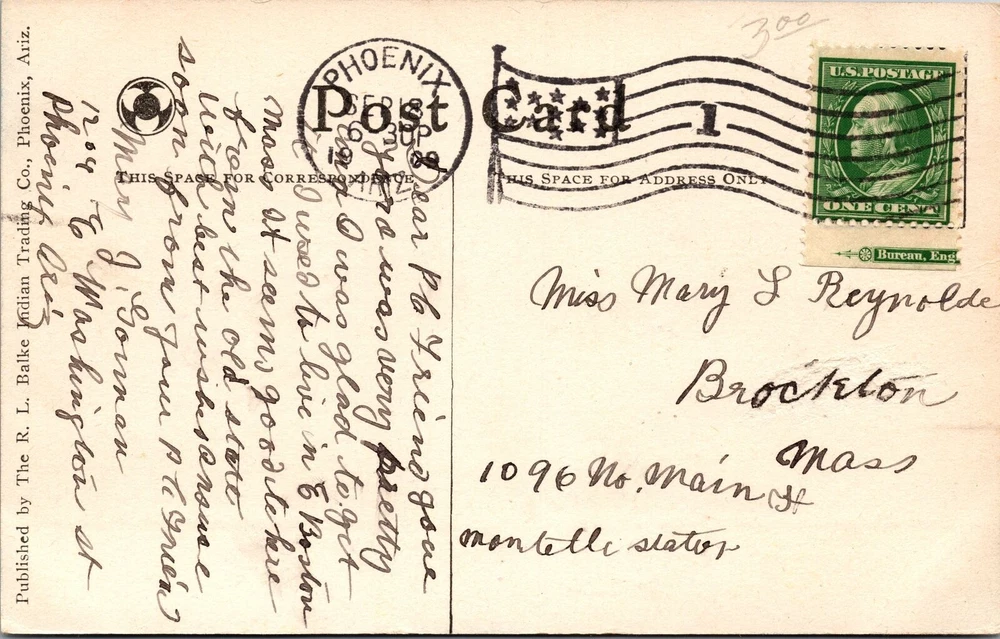 3.00
Post Card
PHOENIX
SEP 18
6 30 P
1909
ARIZ.
1
U.S. POSTAGE
ONE CENT
Bureau, Eng
THIS SPACE FOR CORRESPONDENCE
THIS SPACE FOR ADDRESS ONLY
Dear P C Friend your
card was very pretty
and I was glad to get
it I used to live in E Boston
Mass it seems good to hear
from the old state
with best wishes
soon from your P C Friend
Mary J. Gorman
1209 E Washington st
Phoenix Ariz
Miss Mary L Reynolds
Brockton
Mass
1096 No. Main St
montello station
Published by The R. L. Balke Indian Trading Co., Phoenix, Ariz.